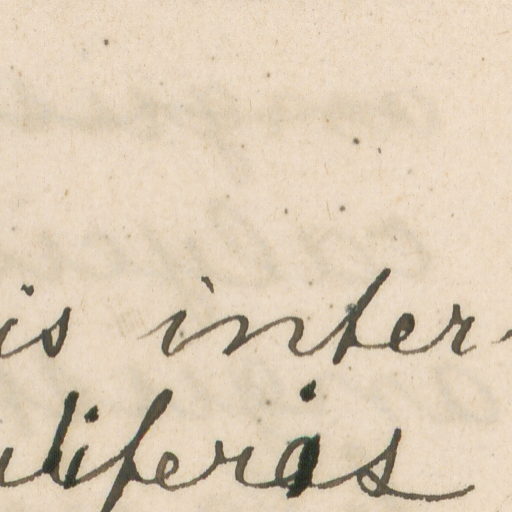 is inter-
uliferis